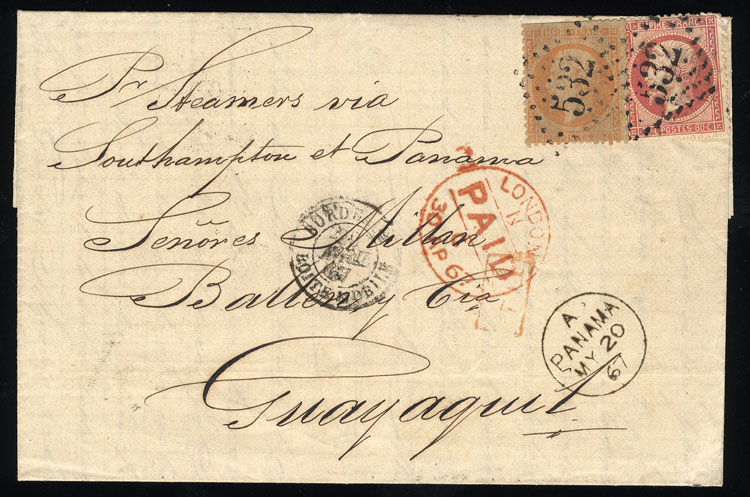 EMPIRE FRANC
532
EMPIRE FRANC
532
POSTES 80 C
Pr Steamers via
Southampton et Panama
LONDON
PAID
30 AP 67
BORD
67
BOITE MOBILE
Señores Millan
Ballen y Cia
A
PANAMA
MY 20
67
Guayaquil